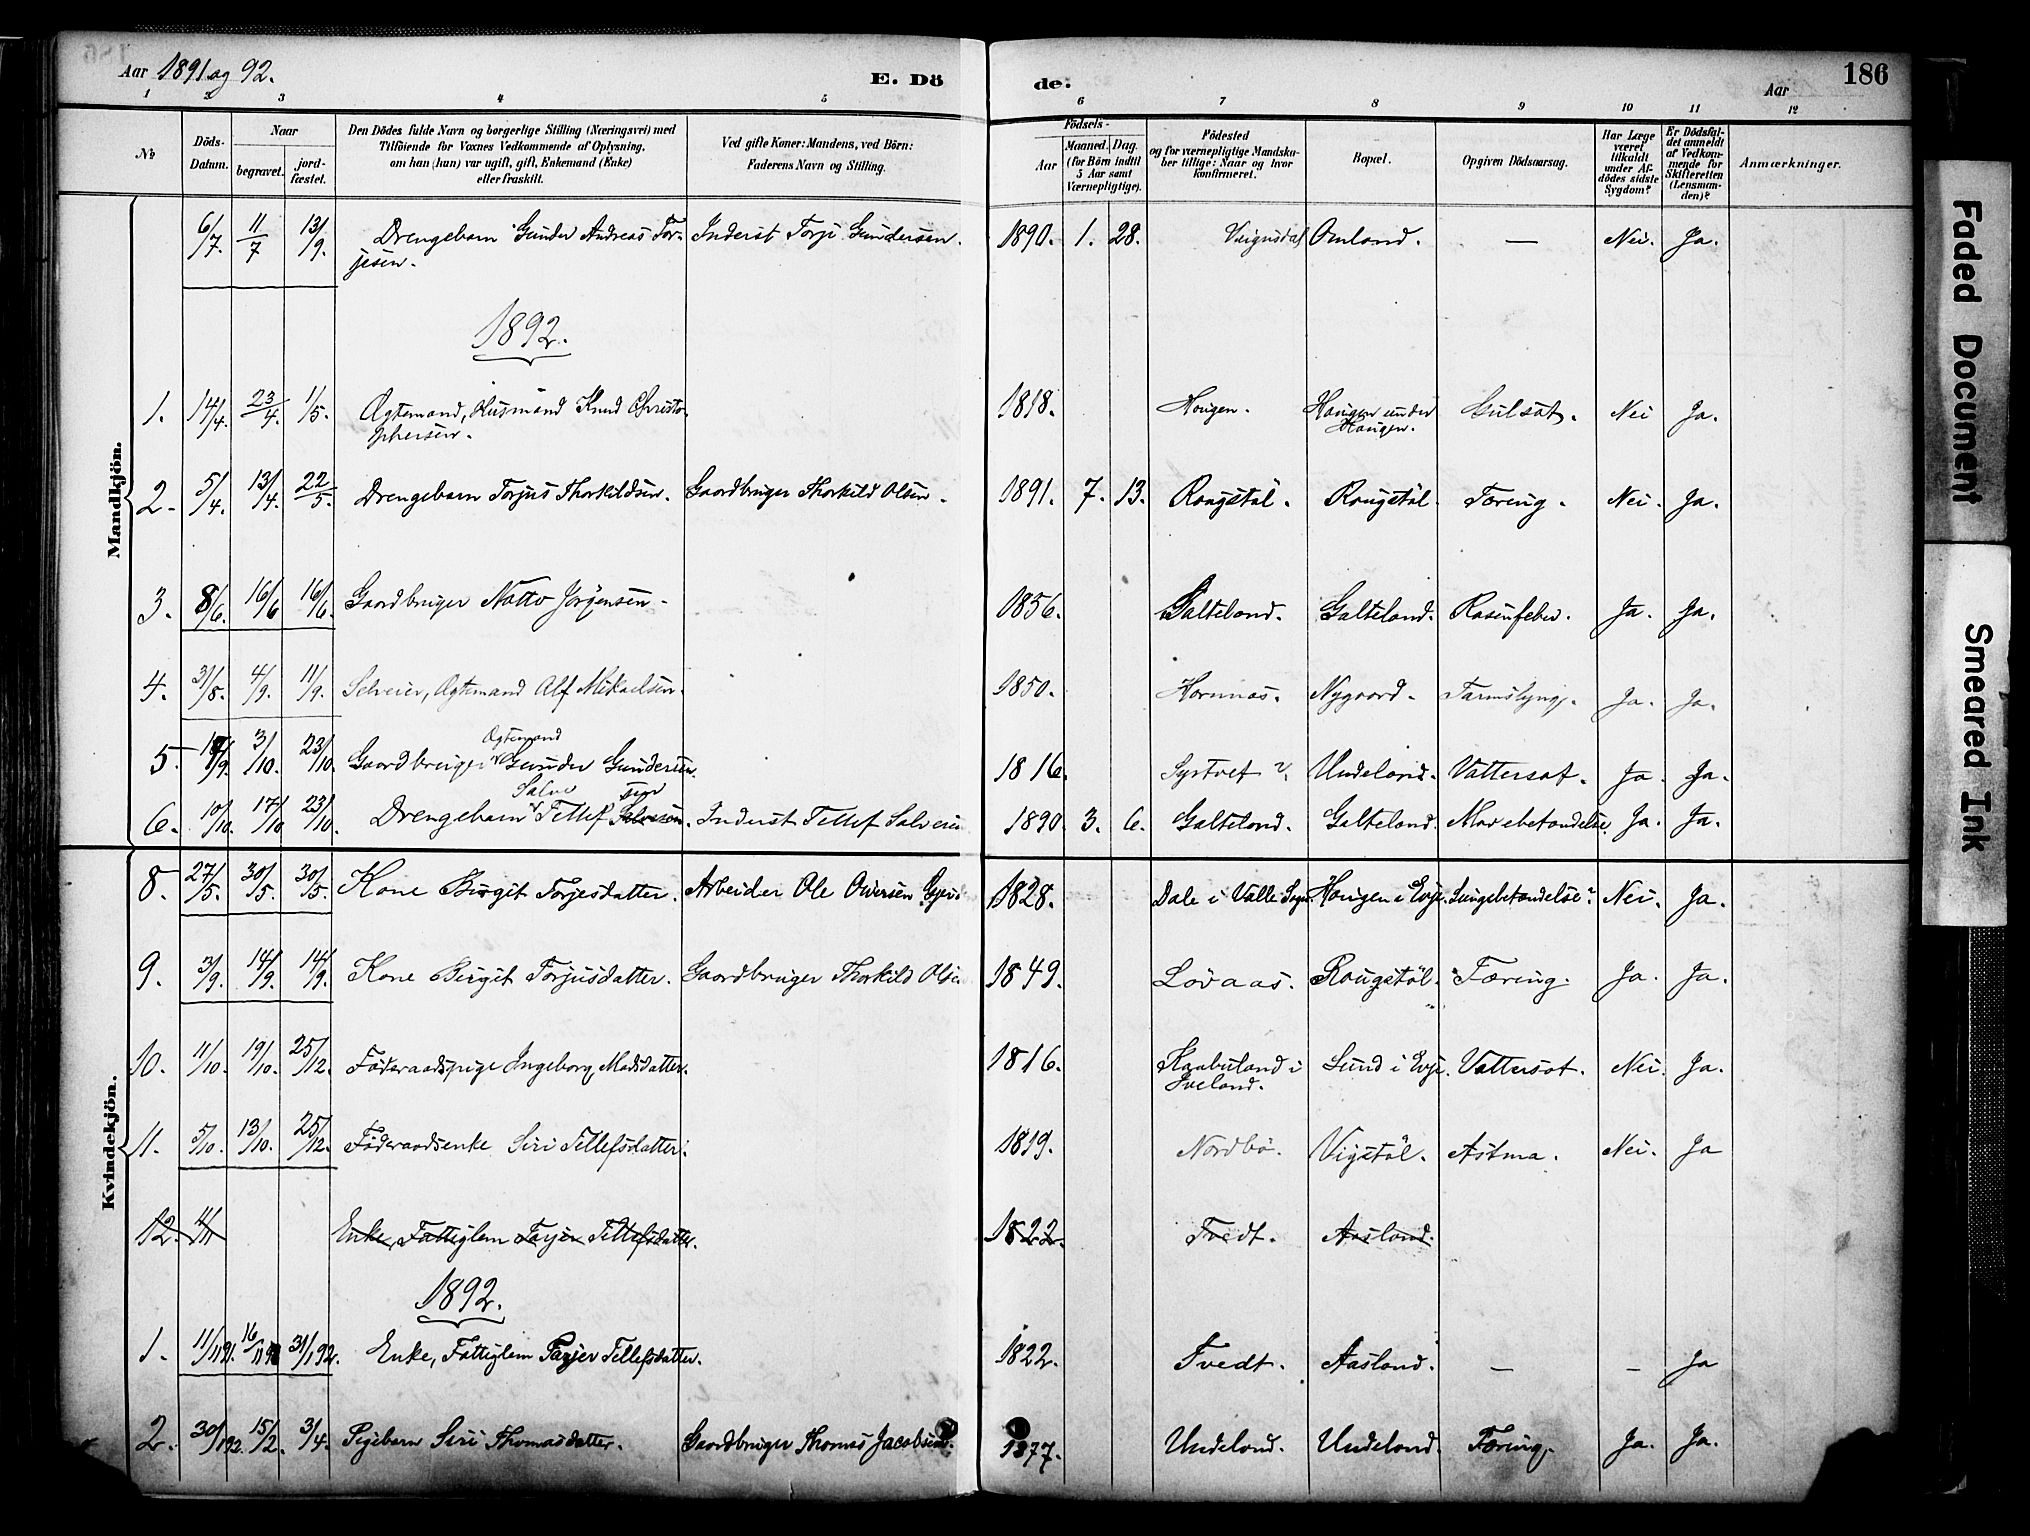 Aar 1891 og 92.
E. Dö
de.
Aar
186
1 2 3 4 5 6 7 8 9 10 11 12
№
Döds-Datum.
Naar
begravet.
jord-fæstet.
Den Dödes fulde Navn og borgerlige Stilling (Næringsvei) med
Tilföiende for Voxnes Vedkommende af Oplysning,
om han (hun) var ugift, gift, Enkemand (Enke)
eller fraskilt.
Ved gifte Koner: Mandens, ved Börn:
Faderens Navn og Stilling.
Födsels-
Aar
Maaned. Dag.
(for Börn indtil
5 Aar samt
Værnepligtige).
Födested
og for værnepligtige Mandska-
ber tillige: Naar og hvor
konfirmeret.
Bopæl.
Opgiven Dödsaarsag.
Har Læge
været
tilkaldt
under Af-
dödes sidste
Sygdom?
Er Dödsfal-
det anmeldt
af Vedkom-
mende for
Skifteretten
(Lensman-
den)?
Anmærkninger.
Mandkjön.
6/7. 11/7 13/9. Drengebarn Gunder Andreas Tor- Inderst Torje Gundersen. 1890. 1. 28. Omland. — Nei. Ja.
jesen.
1892.
1. 14/4. 23/4. 1/5. Ægtemand, Husmand Knud Christo- 1818. Hougen. Hougen under Sulsot. Nei Ja.
phersen. Hougen.
2. 5/4. 13/4. 22/5. Drengebarn Torjus Thorkildsen. Gaardbruger Thorkild Olsen. 1891. 7. 13. Rougstöl. Rougstöl. Tæring. Nei. Ja.
3. 8/6. 16/6 16/6. Gaardbruger Notto Jörgensen. 1856. Galteland. Galteland. Rosenfeber. Ja. Ja.
4. 31/8. 4/9. 11/9. Selveier, Ægtemand Alf Mikaelsen. 1850. Hornnæs. Nygaard. Tarmslyng. Ja. Ja.
Ægtemand
5. 3/10. 23/10. Gaardbruger Gunder Gundersen. 1816. Syrtvet ?. Undeland. Vattersot. Ja. Ja.
Salve sen
6. 10/10. 17/10 23/10. Drengebarn Tellef Salvesen. Inderst Tellef Salvesen 1890. 3. 6. Galteland. Galteland. Mavebetændelse. Ja. Ja.
Kvindekjön.
8. 27/5. 30/5. 30/5. Kone Birgit Torjesdatter. Arbeider Ole 1828. Dale i Valle Sogn. Hougen i Evje. Lungebetændelse? Nei. Ja.
9. 3/9. 14/9. 14/9. Kone Birgit Torjusdatter. Gaardbruger Thorkild Olsen 1849. Lövaas. Rougstöl. Tæring. Ja. Ja.
10. 11/10. 19/10. 25/12. Föderaadspige Ingeborg Madsdatter. 1816. Kaabuland i Lund i Evje. Vattersot. Nei. Ja.
Iveland.
11. 5/10. 13/10. 25/12. Föderaadsenke Siri Tellefsdatter. 1819. Nordbö. Vigstöl. Astma. Nei. Ja
12. 11/11 Enke, Fattiglem Tarjer Tellefsdatter. 1822. Tvedt. Aasland.
1892.
1. 11/11 91. 16/11 91 31/1 92. Enke, Fattiglem Tarjer Tellefsdatter. 1822. Tvedt. Aasland. — — Ja
2. 30/1 92. 15/2. 3/4. Pigebarn Siri Thomasdatter. Gaardbruger Thomas Jacobsen. 1877. Undeland. Undeland. Tæring. Ja. Ja.
Faded Document
Smeared Ink